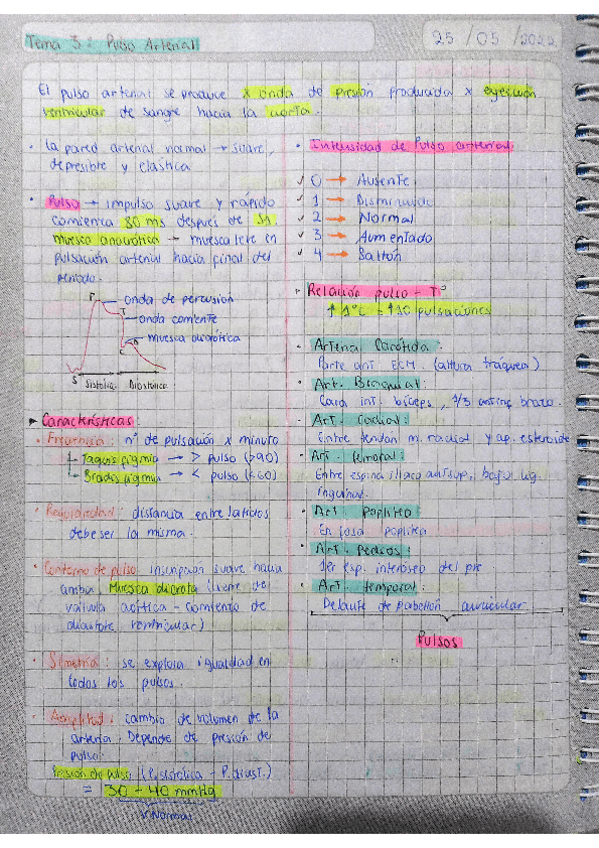 Tema 3: Pulso Arterial
25 / 05 / 2022
El pulso arterial se produce x onda de presión producida x eyección
ventricular de sangre hacia la aorta.
• La pared arterial normal → suave,
depresible y elástica
• Pulso → impulso suave y rápido
comienza 80 ms después de S1.
muesca anacrótica → muesca leve en
pulsación arterial hacia final del
período.
P
onda de percusión
T
onda corriente
muesca dicrótica
S Sistólica Diastólica
► Características:
• Frecuencia: n° de pulsación x minuto
Taquisfigmia → > pulso (>90)
Bradisfigmia → < pulso (<60)
• Regularidad: distancia entre latidos
debe ser la misma.
• Contorno de pulso: inscripción suave hacia
arriba. Muesca dicrota (cierre de
válvula aórtica - comienzo de
diástole ventricular)
• Simetría: se explora igualdad en
todos los pulsos.
• Amplitud: cambio de volumen de la
arteria. Depende de presión de
pulso.
Presión de pulso (P. sistólica - P. diast.)
= 30 - 40 mmHg
Normal
• Intensidad de Pulso arterial
✓ 0 → Ausente
✓ 1 → Disminuido
✓ 2 → Normal
✓ 3 → Aumentado
✓ 4 → Saltón
► Relación pulso - T°
↑ 1°C = ↑ 10 pulsaciones
• Arteria Carótida:
Parte ant. ECM. (altura tráquea)
• Art. Braquial:
Cara int. bíceps, 1/3 brazo.
• Art. radial:
Entre tendón m. radial y ap. estiroide
• Art. femoral:
Entre espina iliaca ant sup, bajo lig.
inguinal.
• Art. Poplítea
En fosa poplítea
• Art. Pedios:
1er esp. interóseo del pie
• Art. temporal:
Delante de pabellón auricular
Pulsos